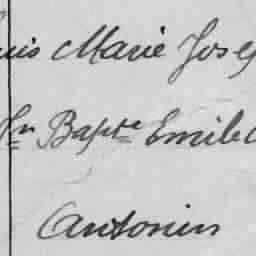 uis Marie Jose
Jn Bapte Emile
Antonin